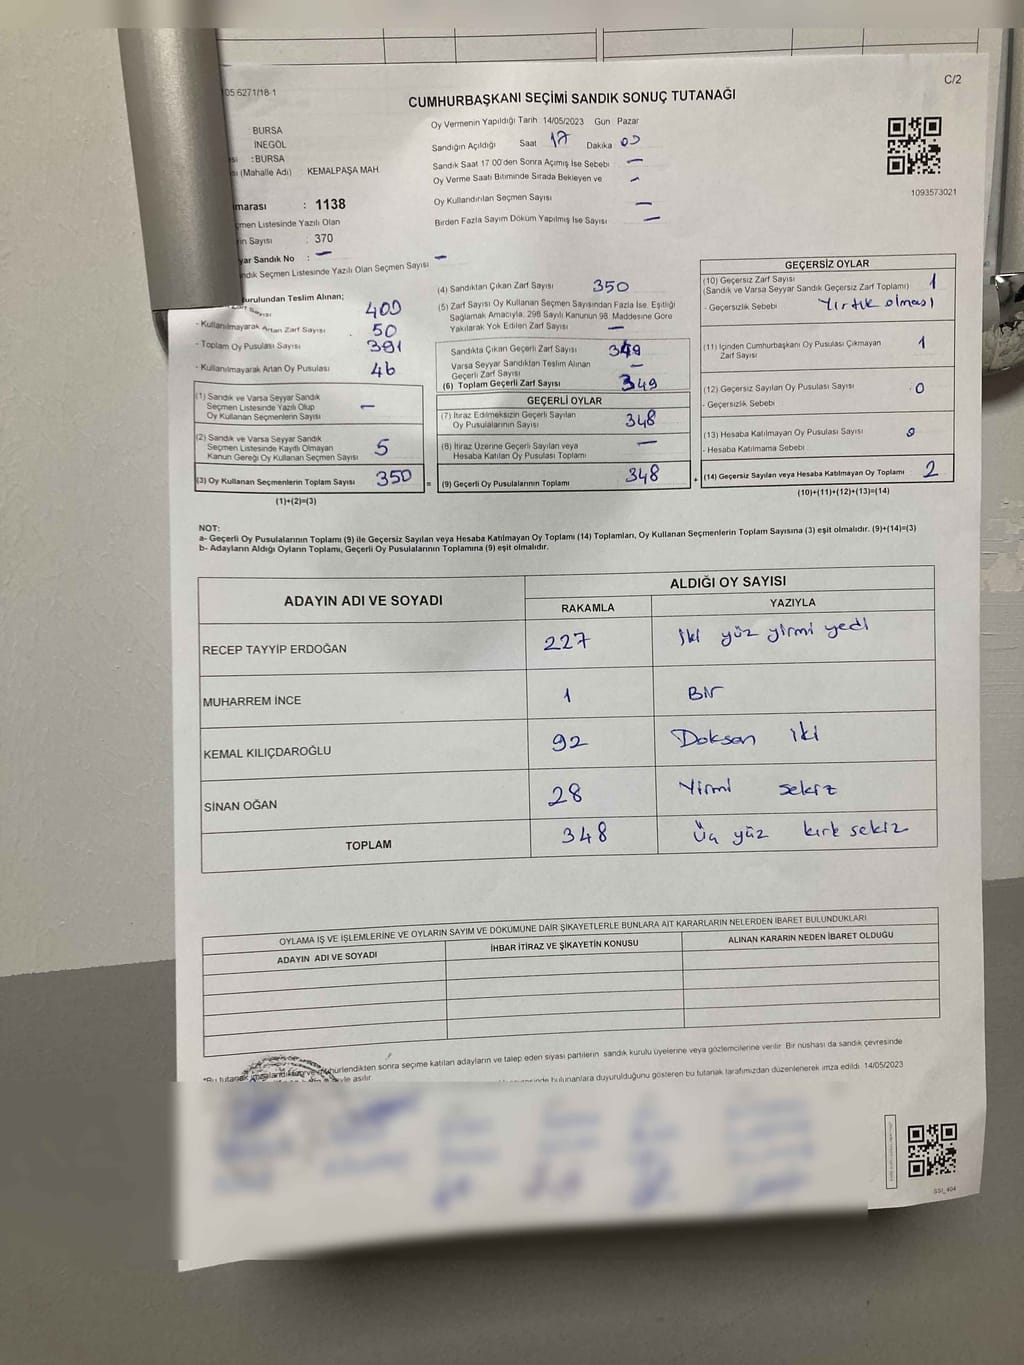 C/2
05 6271/18-1
CUMHURBAŞKANI SEÇİMİ SANDIK SONUÇ TUTANAĞI
BURSA
İNEGÖL
: BURSA
(Mahalle Adı) KEMALPAŞA MAH.
marası : 1138
çmen Listesinde Yazılı Olan
in Sayısı : 370
yar Sandık No : —
ndık Seçmen Listesinde Yazılı Olan Seçmen Sayısı —
Oy Vermenin Yapıldığı Tarih 14/05/2023 Gün Pazar
Sandığın Açıldığı Saat 17 Dakika 00
Sandık Saat 17 00'den Sonra Açımış İse Sebebi —
Oy Verme Saati Bitiminde Sırada Bekleyen ve —
Oy Kullandırılan Seçmen Sayısı —
Birden Fazla Sayım Döküm Yapılmış İse Sayısı —
1093573021
urulundan Teslim Alınan;
Sayısı 400
- Kullanılmayarak Artan Zarf Sayısı 50
- Toplam Oy Pusulası Sayısı 391
- Kullanılmayarak Artan Oy Pusulası 46
(1) Sandık ve Varsa Seyyar Sandık
Seçmen Listesinde Yazılı Olup
Oy Kullanan Seçmenlerin Sayısı —
(2) Sandık ve Varsa Seyyar Sandık
Seçmen Listesinde Kayıtlı Olmayan
Kanun Gereği Oy Kullanan Seçmen Sayısı 5
(3) Oy Kullanan Seçmenlerin Toplam Sayısı 350
(1)+(2)=(3)
(4) Sandıktan Çıkan Zarf Sayısı 350
(5) Zarf Sayısı Oy Kullanan Seçmen Sayısından Fazla İse, Eşitliği
Sağlamak Amacıyla, 298 Sayılı Kanunun 98. Maddesine Göre
Yakılarak Yok Edilen Zarf Sayısı —
Sandıkta Çıkan Geçerli Zarf Sayısı 349
Varsa Seyyar Sandıktan Teslim Alınan
Geçerli Zarf Sayısı —
(6) Toplam Geçerli Zarf Sayısı 349
GEÇERLİ OYLAR
(7) İtiraz Edilmeksizin Geçerli Sayılan
Oy Pusulalarının Sayısı 348
(8) İtiraz Üzerine Geçerli Sayılan veya
Hesaba Katılan Oy Pusulası Toplamı —
= (9) Geçerli Oy Pusulalarının Toplamı 348
GEÇERSİZ OYLAR
(10) Geçersiz Zarf Sayısı
(Sandık ve Varsa Seyyar Sandık Geçersiz Zarf Toplamı) 1
- Geçersizlik Sebebi Yırtık olması
(11) İçinden Cumhurbaşkanı Oy Pusulası Çıkmayan
Zarf Sayısı 1
(12) Geçersiz Sayılan Oy Pusulası Sayısı 0
- Geçersizlik Sebebi
(13) Hesaba Katılmayan Oy Pusulası Sayısı 0
- Hesaba Katılmama Sebebi
+ (14) Geçersiz Sayılan veya Hesaba Katılmayan Oy Toplamı 2
(10)+(11)+(12)+(13)=(14)
NOT:
a- Geçerli Oy Pusulalarının Toplamı (9) ile Geçersiz Sayılan veya Hesaba Katılmayan Oy Toplamı (14) Toplamları, Oy Kullanan Seçmenlerin Toplam Sayısına (3) eşit olmalıdır. (9)+(14)=(3)
b- Adayların Aldığı Oyların Toplamı, Geçerli Oy Pusulalarının Toplamına (9) eşit olmalıdır.
ADAYIN ADI VE SOYADI
ALDIĞI OY SAYISI
RAKAMLA YAZIYLA
RECEP TAYYİP ERDOĞAN 227 iki yüz yirmi yedi
MUHARREM İNCE 1 Bir
KEMAL KILIÇDAROĞLU 92 Doksan iki
SİNAN OĞAN 28 Yirmi sekiz
TOPLAM 348 Üç yüz kırk sekiz
OYLAMA İŞ VE İŞLEMLERİNE VE OYLARIN SAYIM VE DÖKÜMÜNE DAİR ŞİKAYETLERLE BUNLARA AİT KARARLARIN NELERDEN İBARET BULUNDUKLARI
ADAYIN ADI VE SOYADI İHBAR İTİRAZ VE ŞİKAYETİN KONUSU ALINAN KARARIN NEDEN İBARET OLDUĞU
*Bu tutanak hürlendikten sonra seçime katılan adayların ve talep eden siyasi partilerin sandık kurulu üyelerine veya gözlemcilerine verilir. Bir nüshası da sandık çevresinde
asılır. bulunanlara duyurulduğunu gösteren bu tutanak tarafımızdan düzenlenerek imza edildi. 14/05/2023